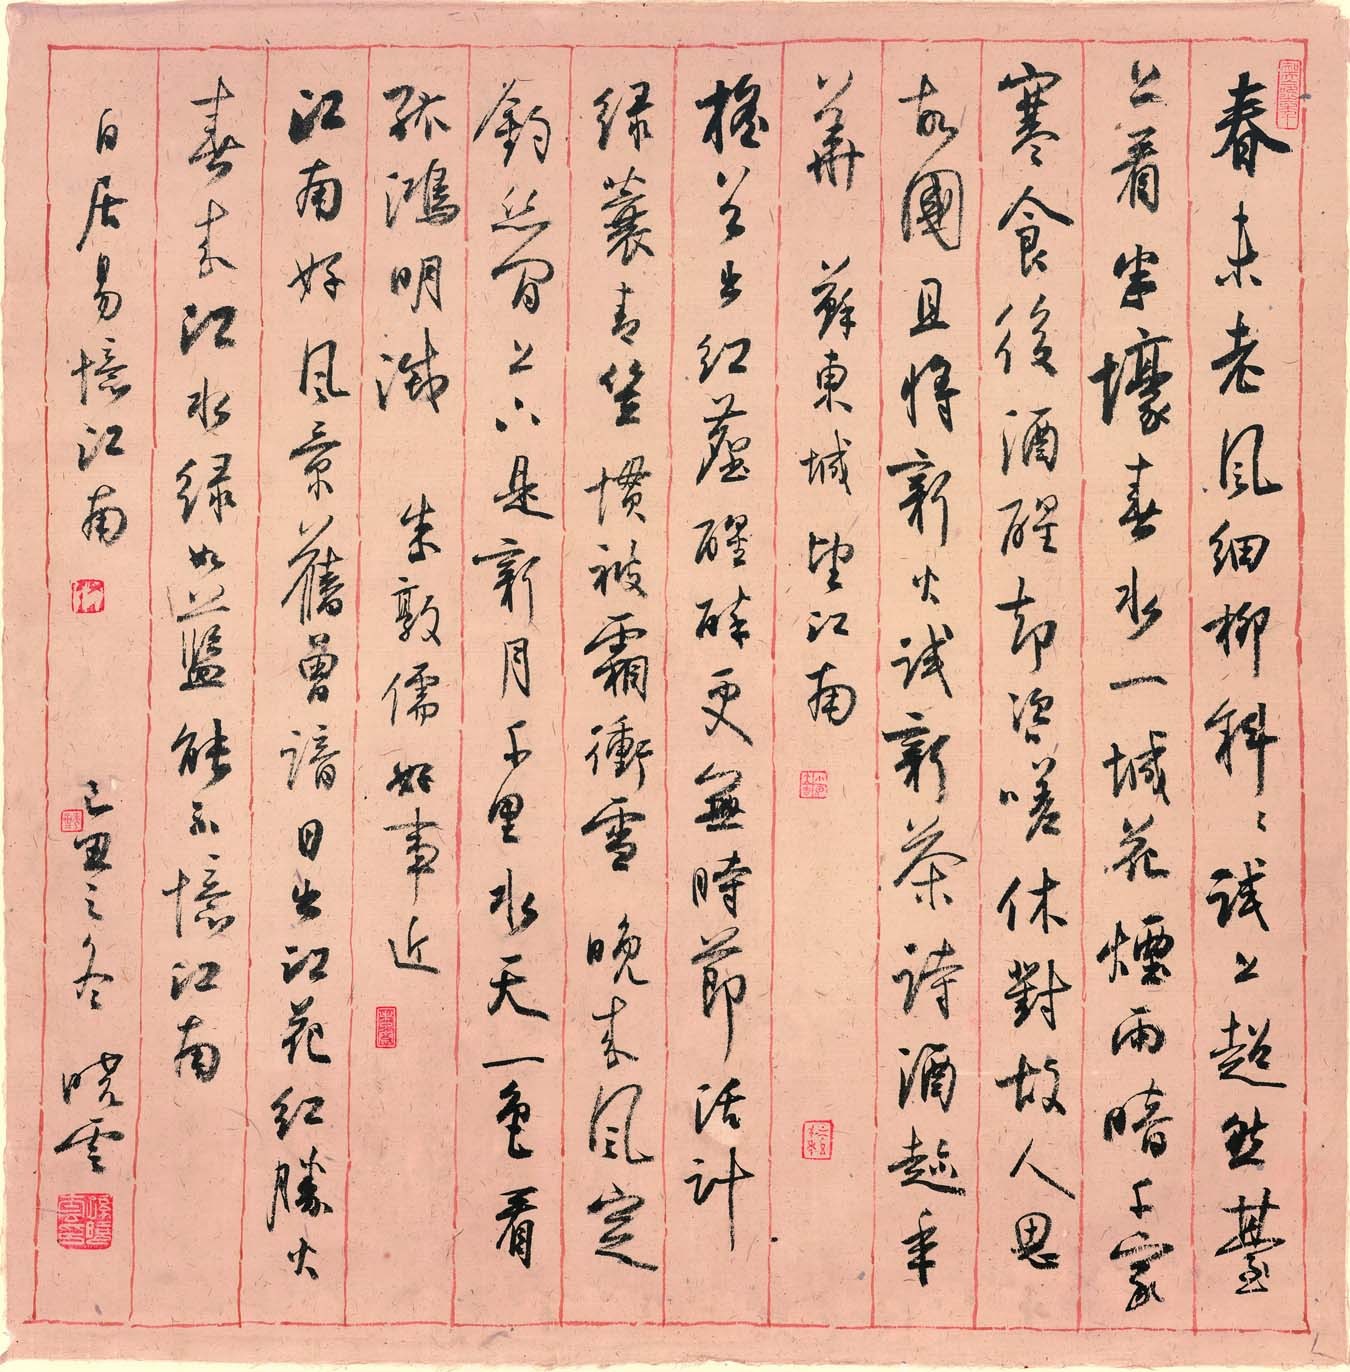 春未老風細柳斜〻試上超然臺
上看半壕春水一城花煙雨暗千家
寒食後酒醒却咨嗟休對故人思
故國且將新火試新茶詩酒趁年
華 蘇東坡 望江南
搖首出紅塵醒醉更無時節活計
绿蓑青笠惯被霜衝雪晚来風定
釣丝閒上下是新月千里水天一色看
孤鴻明滅 朱敦儒好事近
江南好風景舊曾諳日出江花红勝火
春来江水绿如蓝能不憶江南
白居易憶江南 己丑之冬 晓雲